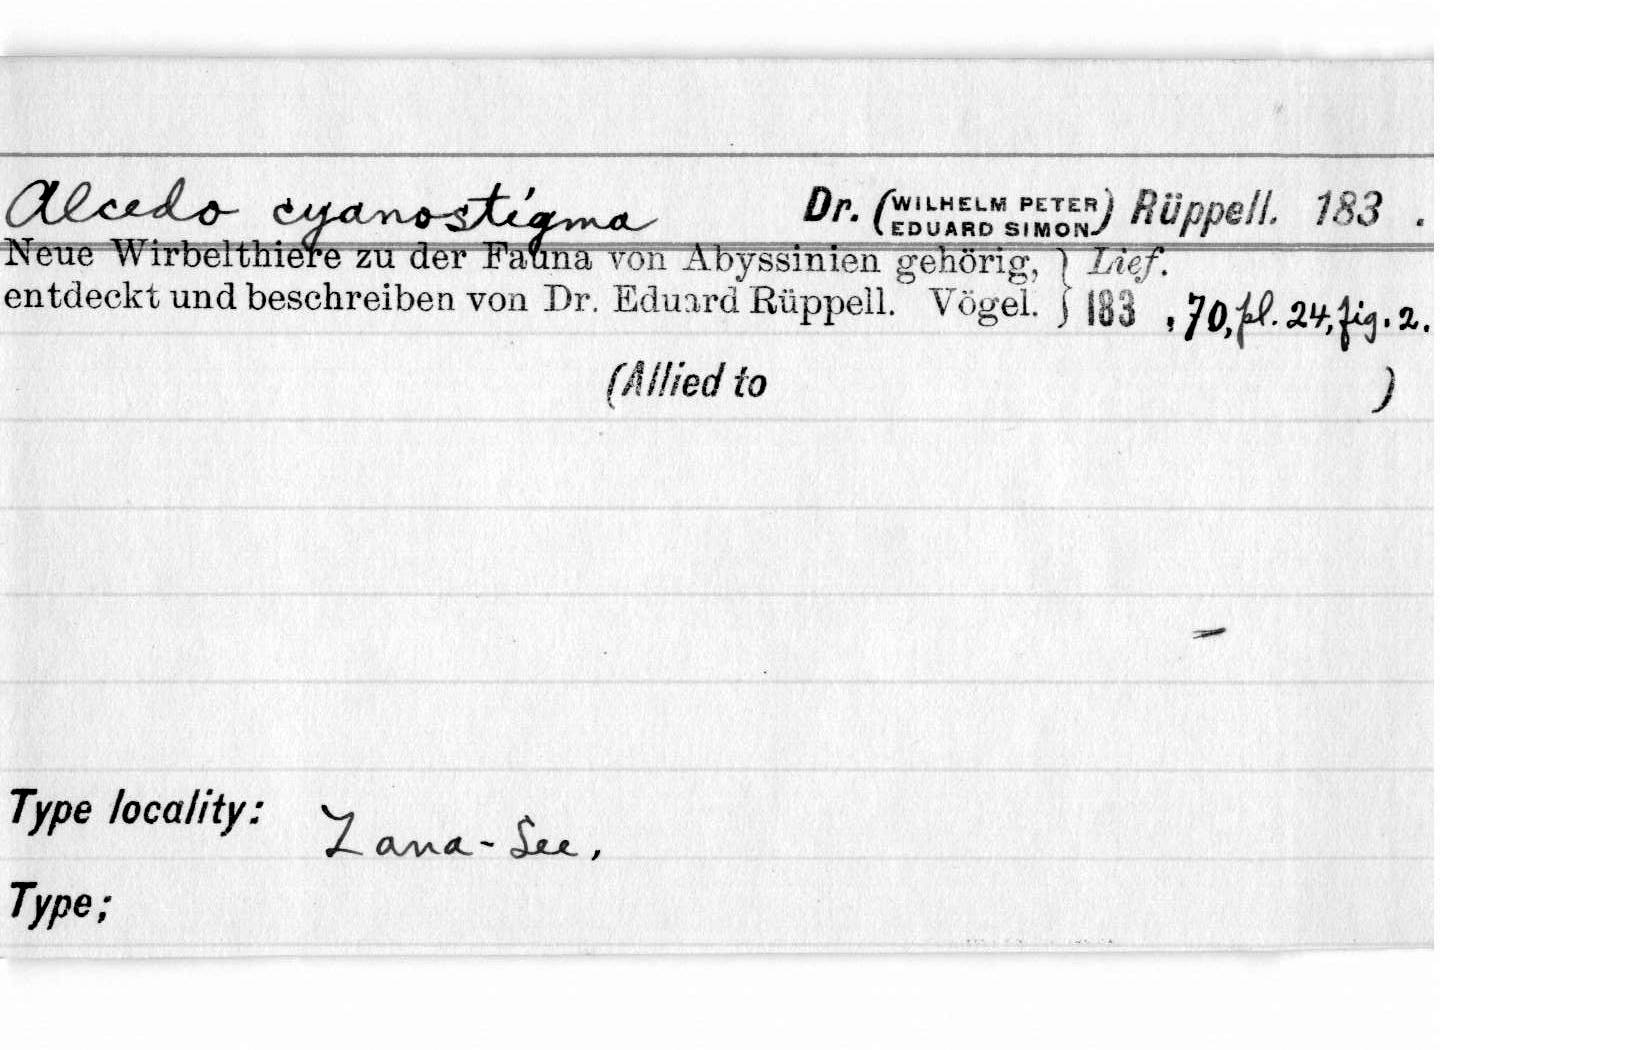 Alcedo cyanostigma Dr. (WILHELM PETER EDUARD SIMON) Rüppell. 183 .
Neue Wirbelthiere zu der Fauna von Abyssinien gehörig, } Lief.
entdeckt und beschreiben von Dr. Eduard Rüppell. Vögel. } 183 , 70, pl. 24, fig. 2.
(Allied to )
Type locality: Zana-See,
Type;